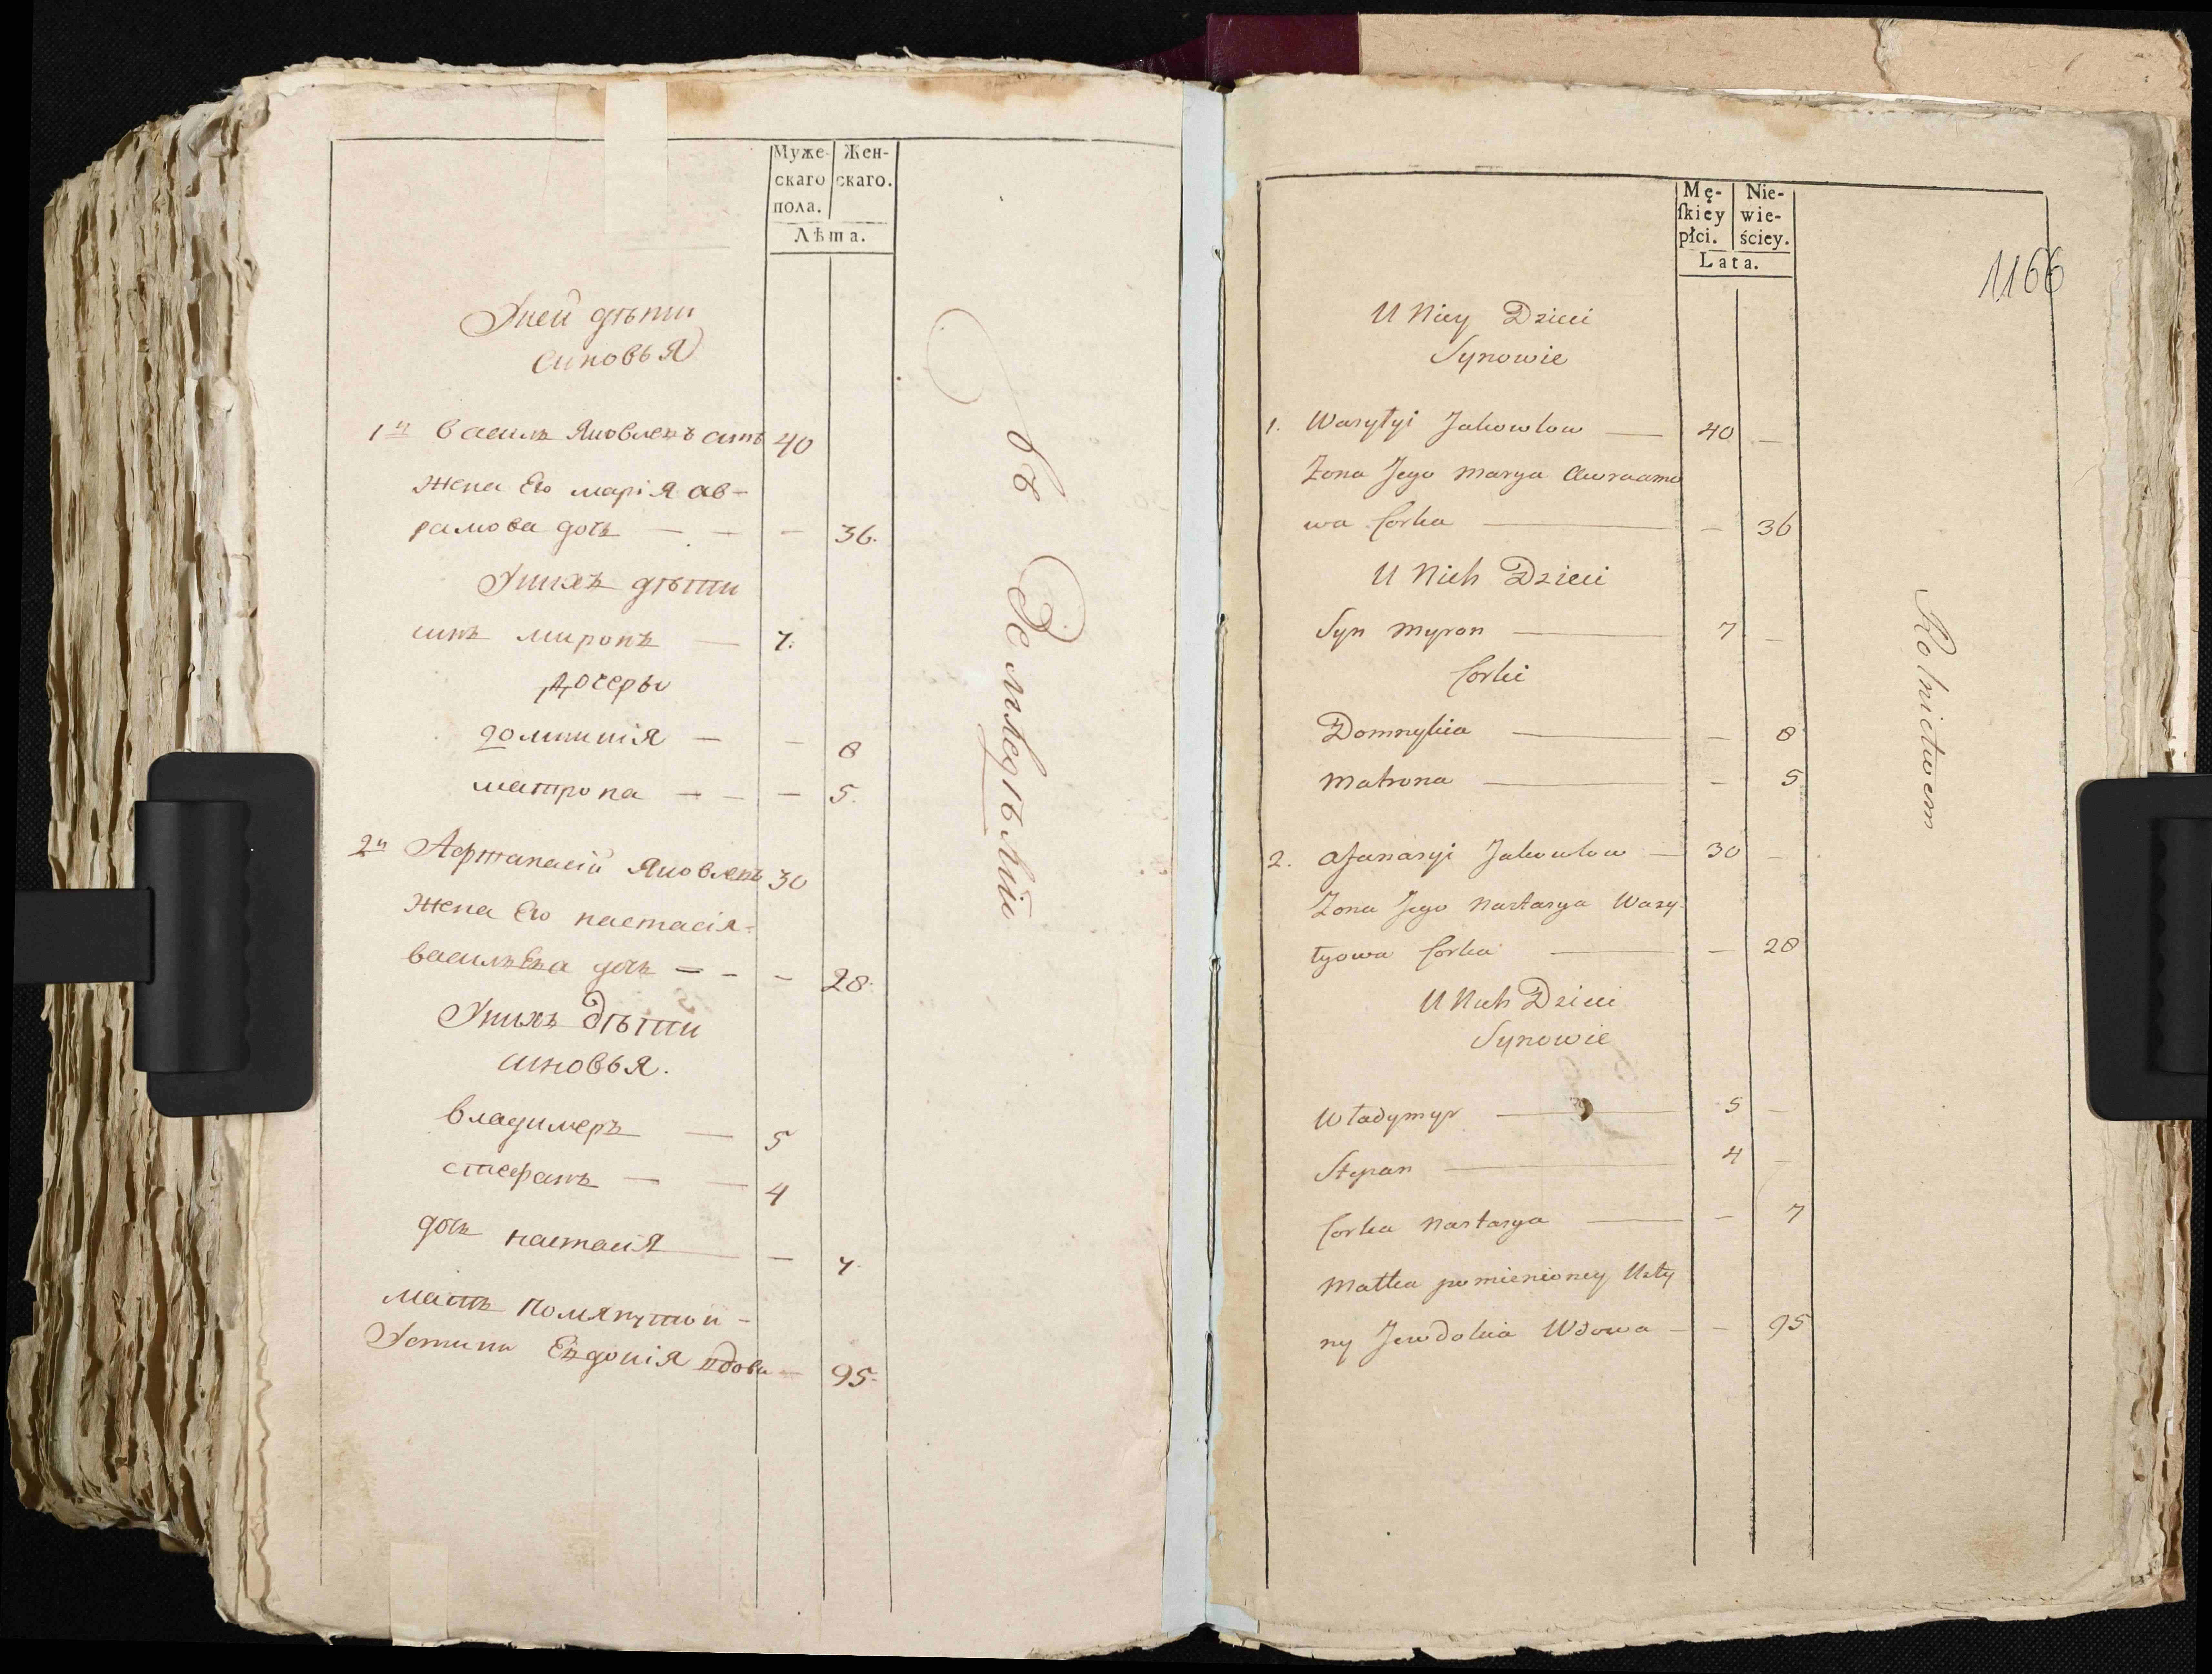 Муже-
скаго
пола.
Жен-
скаго.
Лѣта.
Уней дѣти
синовья
1й василь Яковлевъ синъ 40
жена Его марія ав-
рамова дочь — — — 36.
Унихъ дѣти
синъ миронъ — 7.
Дочеры
домникія — — 8
матрона — — — 5.
2й Афтанасій Яковлевъ 30
жена Его настасія-
васильева дочь — — — 28.
Унихъ дѣти
синовья.
владимеръ — 5
стефанъ — — 4
дочь настасія — — 7.
мать помянутой -
Устини Евдокія вдова — 95.
Земледѣлій
Mę-
ſkiey
płci.
Nie-
wie-
ściey.
Lata.
1166
U Niey Dzieci
Synowie
1. Wasyłyi Jakowlow — 40 —
Zona Jego Marya Awraamo
wa Corka — — 36
U Nich Dzieci
Syn Myron — 7 —
Corki
Domnykia — — 8
Matrona — — 5
2. Afanasyi Jakowlow — 30 —
Zona Jego Nastasya Wasy-
łyowa Corka — — 28
U Nich Dzieci
Synowie
Władymyr — 5 —
Stepan — 4 —
Corka Nastasya — — 7
Matka pomienioney Usty
ny Jewdokia Wdowa — — 95
Rolnictwem